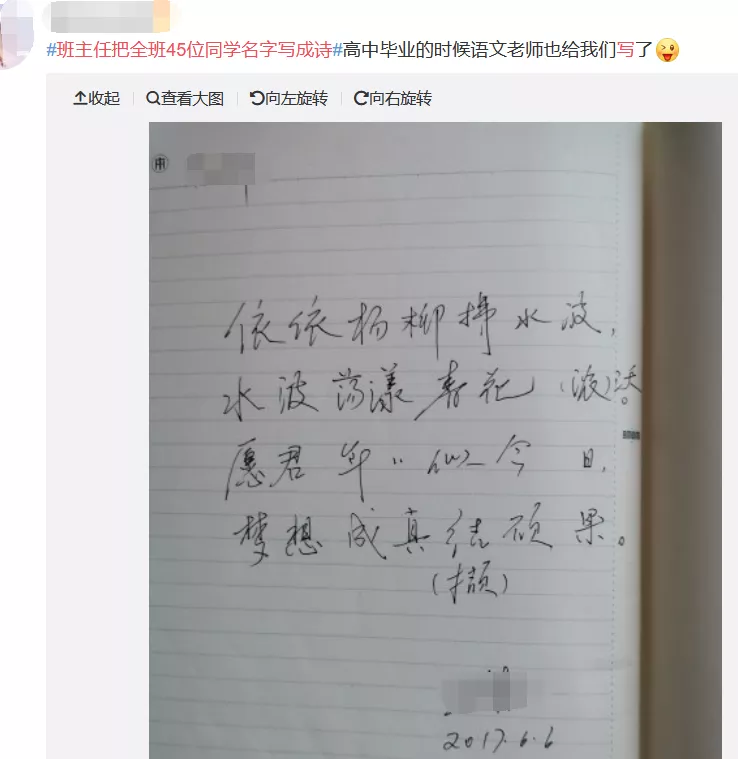 #班主任把全班45位同学名字写成诗#高中毕业的时候语文老师也给我们写了
收起 查看大图 向左旋转 向右旋转
依依杨柳拂水波,
水波荡漾春花(液)沃。
愿君年〃似今日,
梦想成真结硕果。
(撷)
2017.6.6